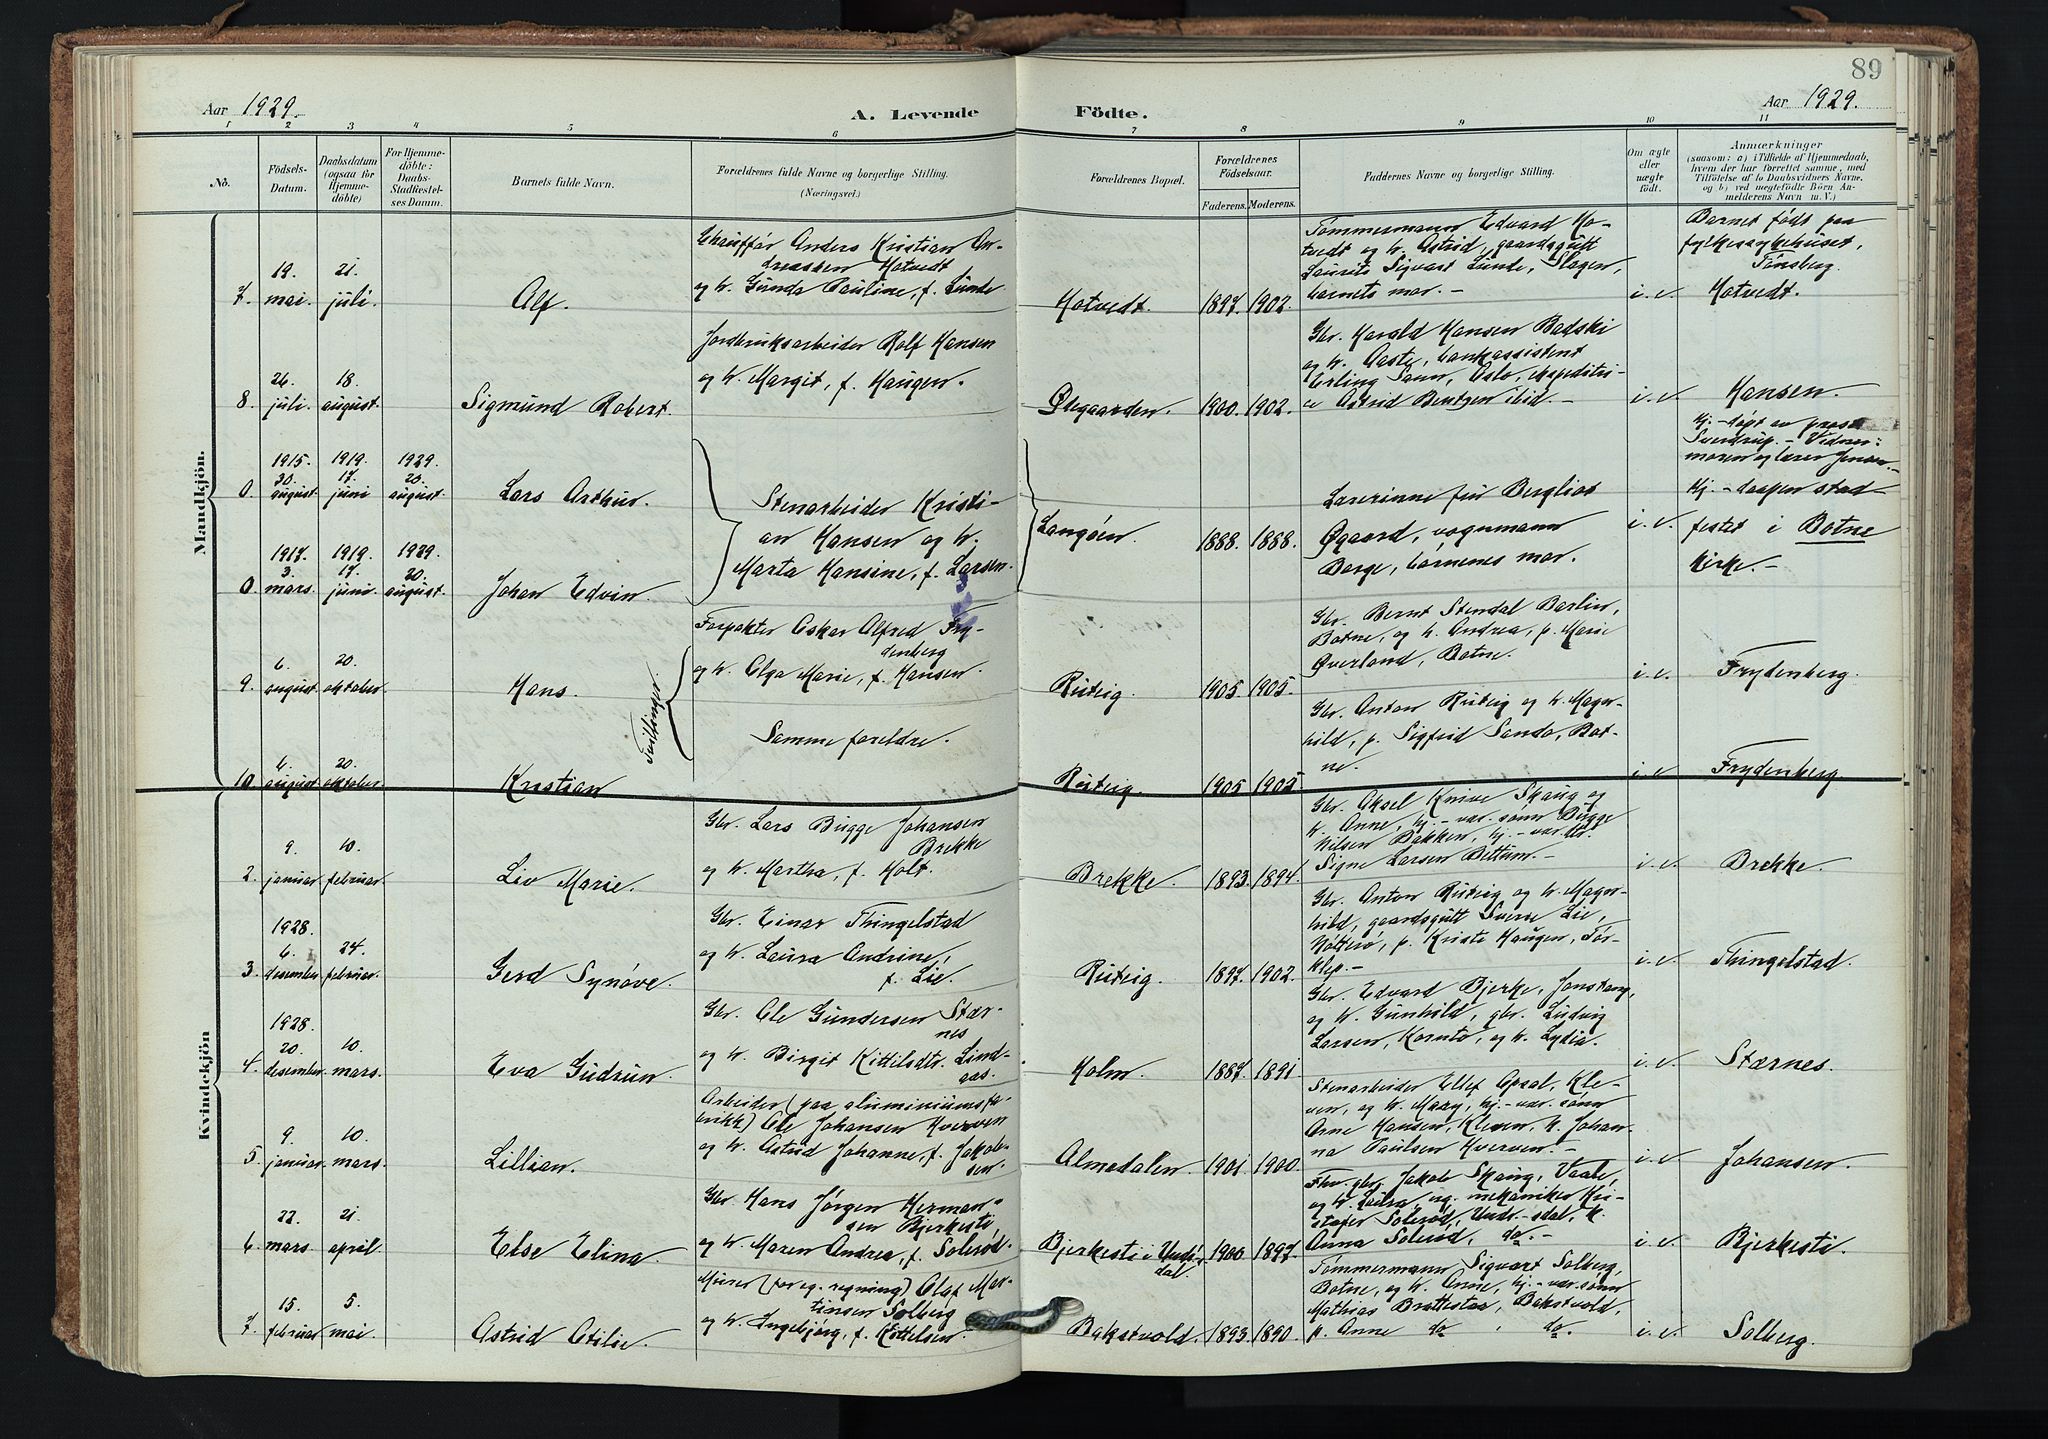 89
Aar 1929.
A. Levende
Födte.
Aar 1929.
1 2 3 4 5 6 7 8 9 10 11
No.
Födsels-
Datum.
Daabsdatum
(ogsaa for
Hjemme-
döbte)
For Hjemme-
döbte:
Daabs-
Stadfæstel-
ses Datum.
Barnets fulde Navn.
Forældrenes fulde Navne og borgerlige Stilling.
(Næringsvei.)
Forældrenes Bopæl.
Forældrenes
Födselsaar.
Faderens. Moderens.
Faddernes Navne og borgerlige Stilling.
Om ægte
eller
uægte
födt.
Anmærkninger
(saasom: a) i Tilfælde af Hjemmedaab,
hvem der har forrettet samme, med
Tilföielse af to Daabsvidners Navne,
og b) ved uegtefödte Börn An-
melderens Navn m. V.)
Mandkjön.
7. 19. mai. 21. juli.
Alf.
Chauffør Anders Kristian An-
dreassen Hotvedt
og h. Gunda Pauline, f. Lunde
Hotvedt. 1897. 1902.
Tømmermann Edvard Ho-
tvedt og h. Astrid, gaardsgutt
Laurits Sigvart Lunde, Slagen,
barnets mor. –
i. e.
Barnet født paa
fylkessykehuset,
Tønsberg.
Hotvedt.
8. 26. juli. 18. august.
Sigmund Robert.
Jordbruksarbeider Rolf Hansen
og h. Margit, f. Haugen.
Ølegaarden. 1900. 1902.
Gbr. Harald Hansen Badski
og h. Aaste, bankassistent
Erling Sann, Oslo, ekspeditri-
ce Astrid Bentzen ibid. –
i. e.
Hansen.
0. 1915. 30. august. 1919. 17. juni 1929. 20. august.
Lars Arthur.
Stenarbeider Kristi-
an Hansen og h.
Marta Hansine, f. Larsen.
Langøen. 1888. 1888.
Lærerinne frk Bergliot
Øgaard, vognmann
Borge, børnenes mor.
i. e.
Hj.-døpt av prest
Sverdrup. – Vidner:
moren og lærer Jensen. –
Hj. – daapen stad-
festet i Botne
kirke. –
0. 1917. 3. mars. 1919. 17. juni. 1929. 20. august.
Johan Edvin.
9. 6. august. 20. oktober.
Hans.
Tvillinger.
Forpakter Oskar Alfred Fry-
denberg
og h. Olga Marie, f. Hansen.
Rutvig. 1905. 1905.
Gbr. Bernt Stendal Barlin,
Botne, og h. Andrea, p. Marie
Øverland, Botne.
i. e.
Frydenberg.
10. 6. august. 20. oktober.
Kristian
Samme foreldre.
Rutvig. 1905. 1905.
Gbr. Anton Rutvig og h. Magn-
hild, p. Sigfrid Sando, Bot-
ne.
i. e.
Frydenberg
Kvindekjön
2. 9. januar. 10. februar.
Liv Marie.
Gbr. Lars Bugge Johansen
Brekke
og h. Martha, f. Holt.
Brekke. 1893. 1894.
Gbr. Aksel Knive Skaug og
h. Anne, hj.-vær. sønn Bugge
Nilsen Bakken, hj.-vær. dtr.
Signe Larsen Bettum. –
i. e.
Brekke.
3. 1928. 6. desember. 24. februar.
Gerd Synøve.
Gbr. Einar Thingelstad
og h. Laura Andrine,
f. Lie.
Rutvig. 1897. 1902.
Gbr. Anton Rutvig og h. Magn-
hild, gaardsgutt Sverre Lie,
Nøtterø, p. Kriste Haugen, For-
klep. –
i. e.
Thingelstad.
4. 1928. 20. desember. 10. mars.
Eva Gudrun.
Gbr. Ole Gundersen Stær-
nes
og h. Birgit Kittilsdtr. Lind-
aas.
Holm. 1887. 1891.
Gbr. Edvard Bjerke, Jonskog,
og h. Gunhild, gbr. Ludvig
Larsen, Kornto, og h. Lydia.
i. e.
Stærnes.
5. 9. januar. 10. mars.
Lillian.
Arbeider (paa aluminiumsfa-
brikk) Ole Johansen Kverven
og h. Astrid Johanne, f. Jakob-
sen.
Almedalen. 1901. 1900.
Stenarbeider Ellef Opsal, Kle-
ven, og h. Mary, hj.-vær. sønn
Arne Hansen, Kleven, h. Johan-
na Paulsen Kverven. –
i. e.
Johansen.
6. 22. mars. 21. april.
Else Elina.
Gbr. Hans Jørgen Herman-
sen Bjerkesti,
og h. Maren Andrea, f. Solerød.
Bjerkesti i Undr.
dal. 1900. 1897.
Fhv. gbr. Jakob Skaug, Vaale,
og h. Laura, ug. mekaniker Kri-
stofer Solerød, Undr.-dal, h.
Anna Solerød, do. –
i. e.
Bjerkesti.
7. 15. februar. 5. mai.
Astrid Otilie.
Murer (for eg. regning) Olaf Mar-
tinsen Solberg
og h. Ingebjørg, f. Kittelsen.
Bakstvold. 1893. 1890.
Tømmermann Sigvart Solberg,
Botne, og h. Anne, hj.-vær. sønn
Mathias Brattestaa, Bakstvold,
p. Anne do , do.
i. e.
Solberg.